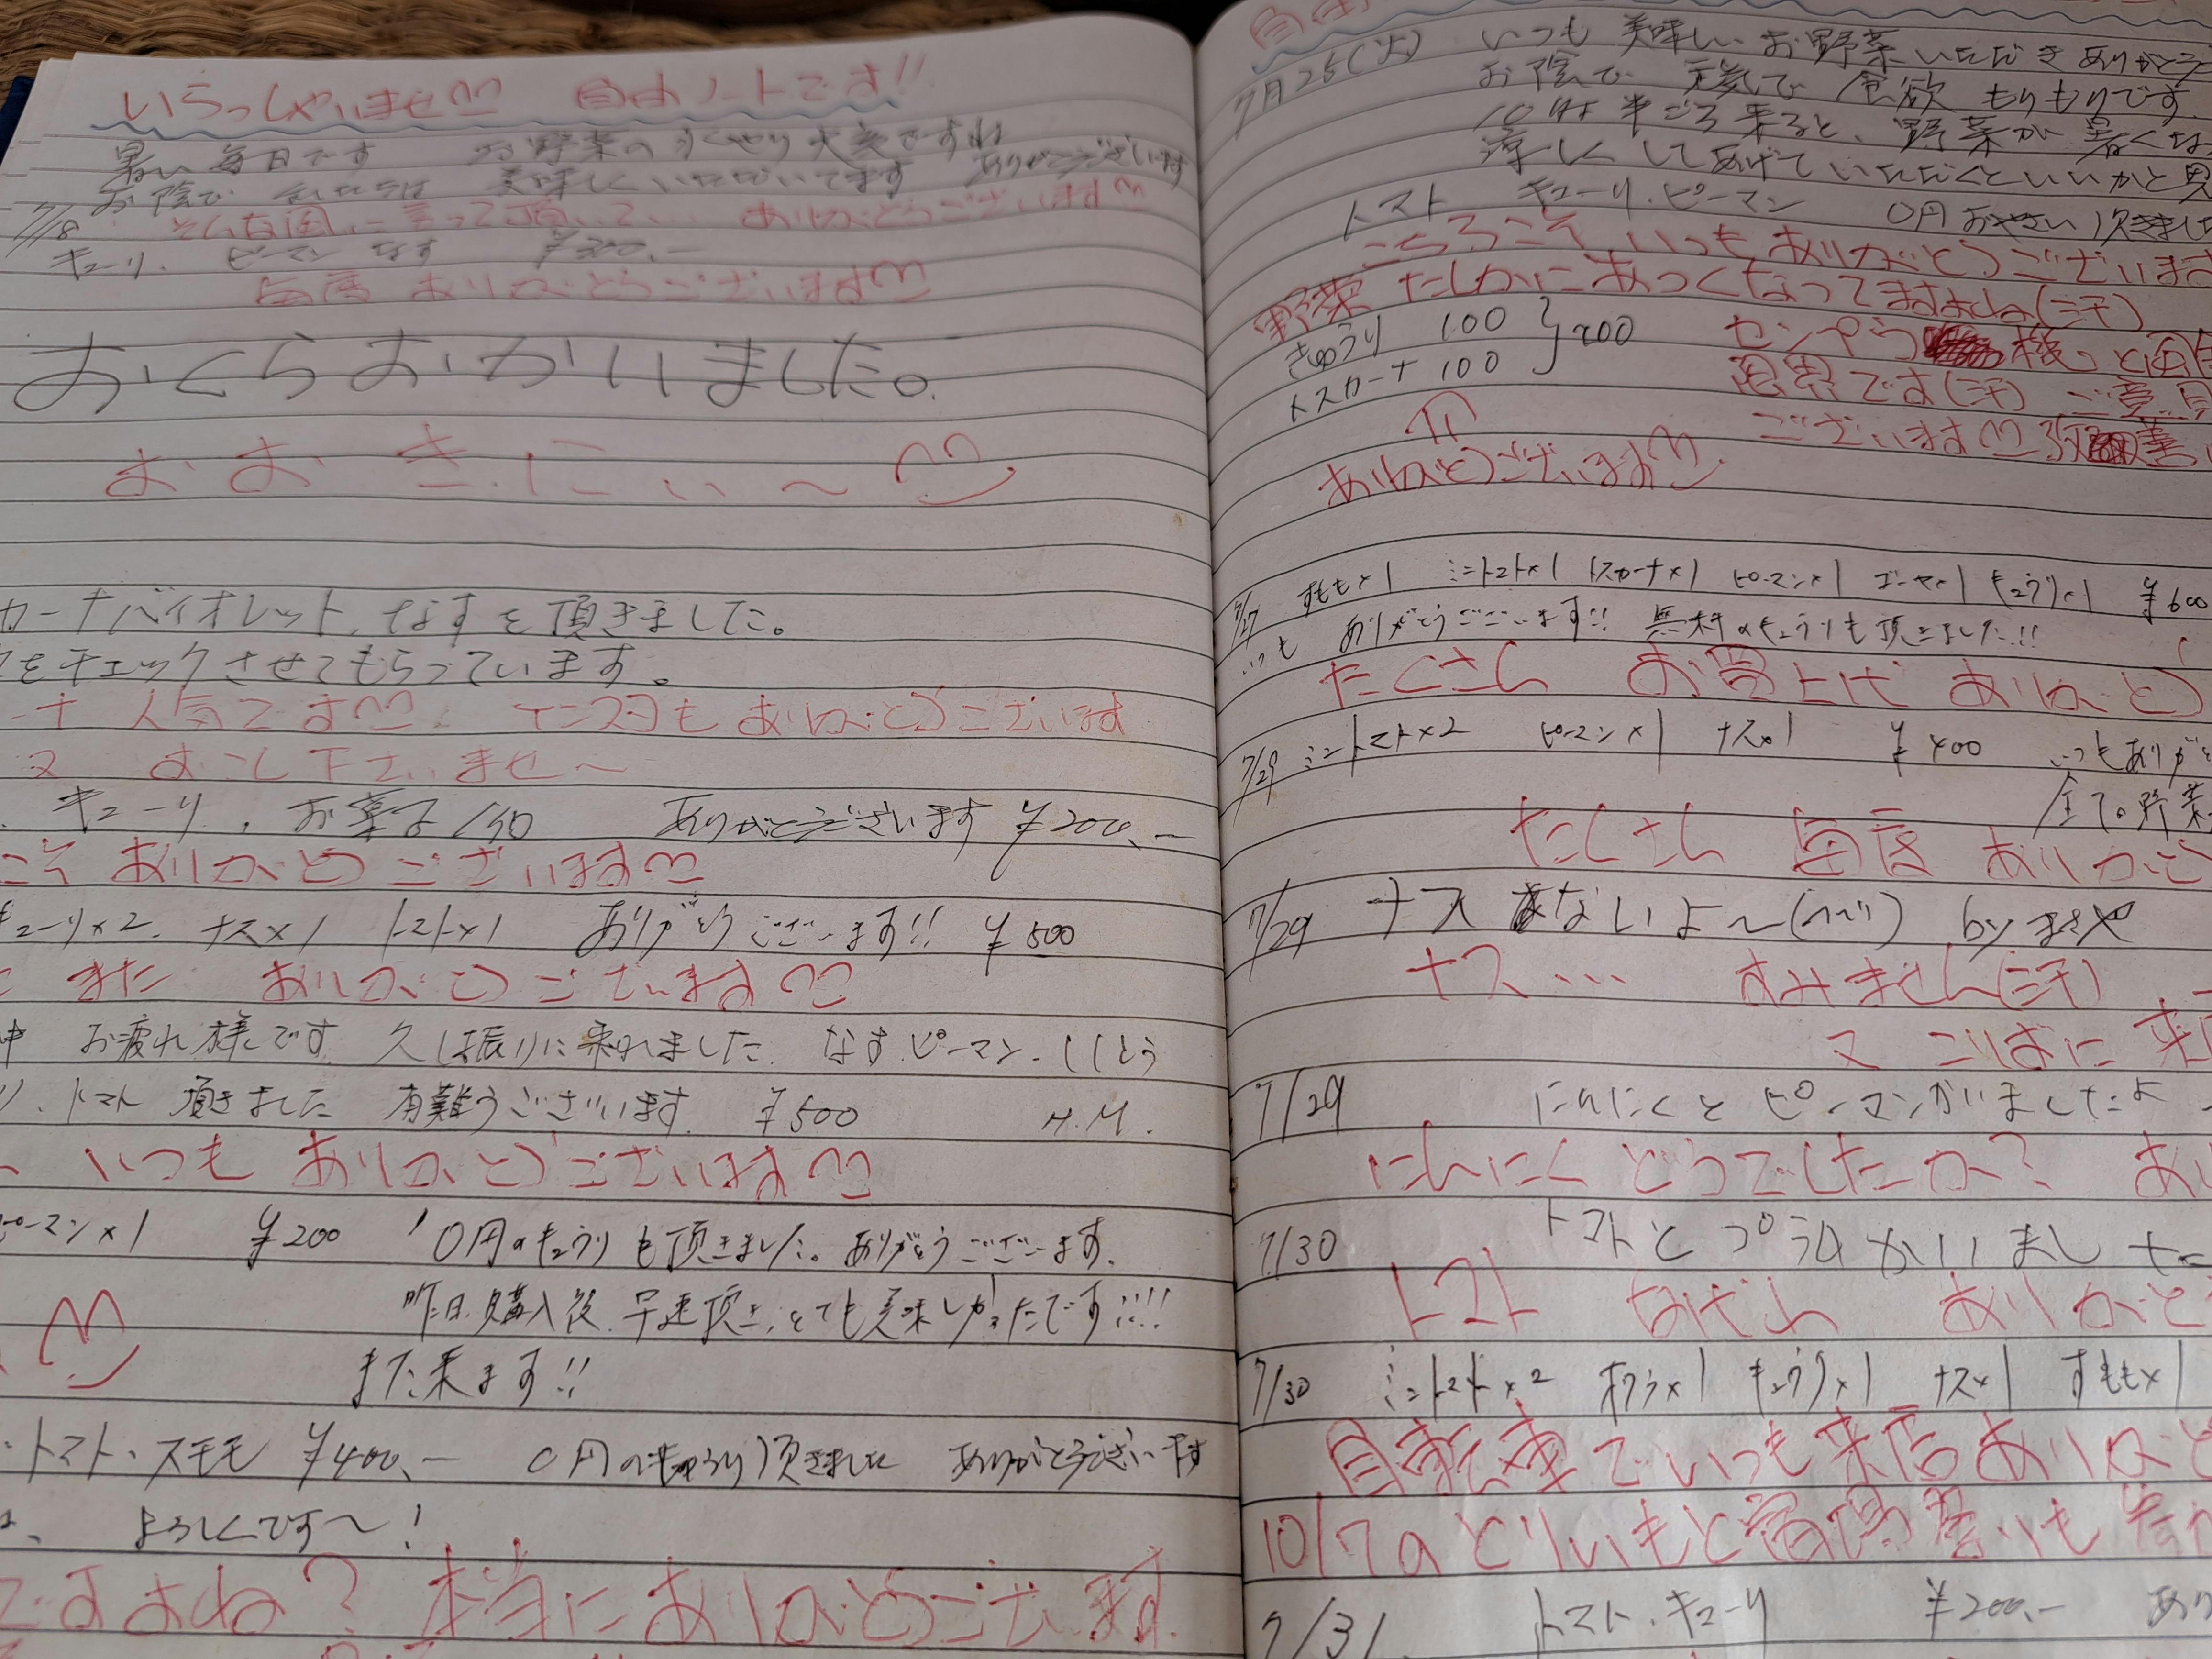 いらっしゃいませ 自由ノートです!!
暑い毎日です お野菜の 大変ですね
お陰で 私たちは 美味しくいただいてます ありがとうございます
そんな風に言って頂いて… ありがとうございます
7/8 キューリ、ピーマン なす ¥300.-
毎度 ありがとうございます
おくらおかいました。
おおきにぃ〜
カーナバイオレット、なすを頂きました。
をチェックさせてもらっています。
ーナ 人気です インスタもありがとうございます
又 おこし下さいませ〜
キューリ、お菓子 ありがとうございます ¥200.-
こそ ありがとうございます
キューリ×2、ナス×1 トマト×1 ありがとうございます!! ¥500
また ありがとうございます
中 お疲れ様です 久し振りに来れました なす、ピーマン、ししとう
り、トマト 頂きました 有難うございます ¥500 H.M.
いつも ありがとうございます
ピーマン×1 ¥200 0円のきゅうりも頂きました。ありがとうございます。
昨日、購入後、早速頂き、とても美味しかったです!!!!
また来ます!!
・トマト・スモモ ¥400.- 0円のきゅうり頂きました ありがとうございます
よろしくです〜!
ですよね? 本当にありがとうございます
7月25(火) いつも 美味しいお野菜いただきありがとう
お陰で 元気で 食欲 もりもりです
10時半ごろ来ると、野菜が 暑くな
涼しくしてあげていただくといいかと思
トマト キューリ、ピーマン 0円おやさい頂きました
こちらこそ いつもありがとうございます
野菜 たしかにあつくなってますよね(汗)
きゅうり 100
トスカーナ 100
}200
センプウ機
限界です(汗) ご意見
ございます
ありがとうございます
7/27 すもも×1 ミニトマト×1 トスカーナ×1 ピーマン×1 ゴーヤ×1 きゅうり×1 ¥600
いつも ありがとうございます!! 無料のきゅうりも頂きました!!
たくさん お買上げ ありがとう
7/29 ミニトマト×2 ピーマン×1 ナス×1 ¥400 いつもありがと
全ての野菜
たくさん 毎度 ありがとう
7/29 ナス ないよ〜 by まさや
ナス… すみません(汗)
又 こりずに 来
7/29 にんにくと ピーマンかいましたよ
にんにく どうでしたか? あり
7/30 トマトとプラムかいました
トマト プラム ありがと
7/30 ミニトマト×2 オクラ×1 きゅうり×1 ナス×1 すもも×1
自転車でいつも来店ありがと
10/7のとりいもと宿場
7/31 トマト、キューリ ¥200.- あり